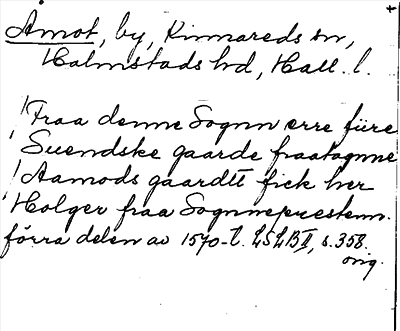 Åmot, by, Kinnareds sn,
Halmstads hd, Hall. l.
Fraa denne Sognn erre fiire
Suendske gaarde fraatagnne
Aamods gaardtt fick her
Holger fraa Sognnepresten.
förra delen av 1570-t. LSLB II, s. 358.
orig.